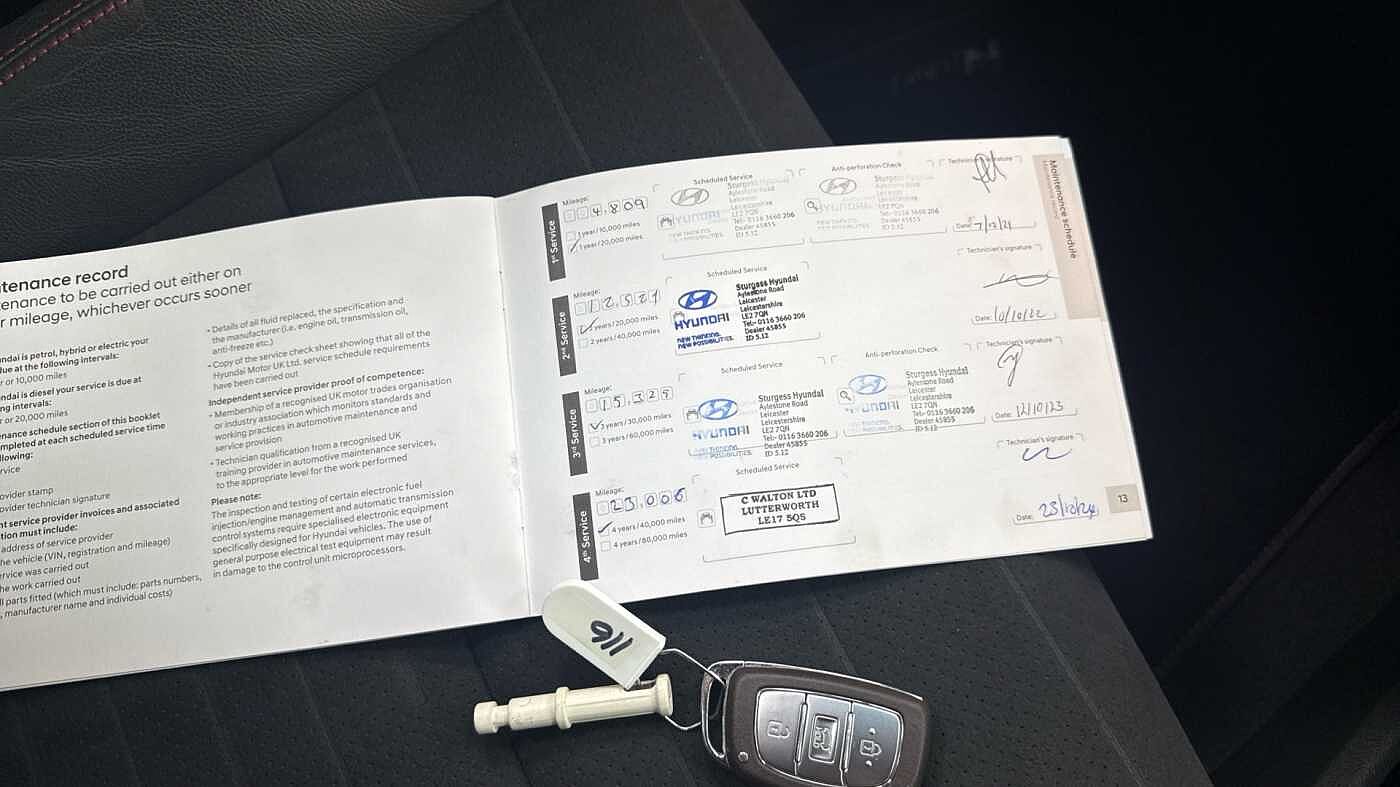 tenance record
tenance to be carried out either on
r mileage, whichever occurs sooner
undai is petrol, hybrid or electric your
due at the following intervals:
r or 10,000 miles
undai is diesel your service is due at
ing intervals:
or 20,000 miles
enance schedule section of this booklet
mpleted at each scheduled service time
ollowing:
rvice
ovider stamp
ovider technician signature
nt service provider invoices and associated
tion must include:
address of service provider
he vehicle (VIN, registration and mileage)
ervice was carried out
he work carried out
ll parts fitted (which must include: parts numbers,
, manufacturer name and individual costs)
• Details of all fluid replaced, the specification and
the manufacturer (i.e. engine oil, transmission oil,
anti-freeze etc.)
• Copy of the service check sheet showing that all of the
Hyundai Motor UK Ltd. service schedule requirements
have been carried out
Independent service provider proof of competence:
• Membership of a recognised UK motor trades organisation
or industry association which monitors standards and
working practices in automotive maintenance and
service provision
• Technician qualification from a recognised UK
training provider in automotive maintenance services,
to the appropriate level for the work performed
Please note:
The inspection and testing of certain electronic fuel
injection/engine management and automatic transmission
control systems require specialised electronic equipment
specifically designed for Hyundai vehicles. The use of
general purpose electrical test equipment may result
in damage to the control unit microprocessors.
1st Service
Mileage:
4,809
1 year/10,000 miles
1 year/20,000 miles
Scheduled Service
HYUNDAI
NEW THINKING.
NEW POSSIBILITIES.
Sturgess Hyundai
Aylestone Road
Leicester
Leicestershire
LE2 7QN
Tel:- 0116 3660 206
Dealer 45855
ID 5.12
Anti-perforation Check
HYUNDAI
NEW THINKING.
NEW POSSIBILITIES.
Sturgess Hyundai
Aylestone Road
Leicester
Leicestershire
LE2 7QN
Tel:- 0116 3660 206
Dealer 45855
ID 5.12
Technician's signature
Date: 7/12/21
2nd Service
Mileage:
12,521
2 years/40,000 miles
Scheduled Service
HYUNDAI
NEW THINKING.
NEW POSSIBILITIES.
Sturgess Hyundai
Aylestone Road
Leicester
Leicestershire
LE2 7QN
Tel:- 0116 3660 206
Dealer 45855
ID 5.12
Technician's signature
Date: 10/10/22
3rd Service
Mileage:
15,329
3 years/30,000 miles
3 years/60,000 miles
Scheduled Service
HYUNDAI
NEW THINKING.
NEW POSSIBILITIES.
Sturgess Hyundai
Aylestone Road
Leicester
Leicestershire
LE2 7QN
Tel:- 0116 3660 206
Dealer 45855
ID 5.12
Anti-perforation Check
HYUNDAI
Sturgess Hyundai
Aylestone Road
Leicester
Leicestershire
LE2 7QN
Tel:- 0116 3660 206
Dealer 45855
ID 5.12
Technician's signature
Date: 12/10/23
4th Service
Mileage:
23,006
4 years/40,000 miles
4 years/80,000 miles
Scheduled Service
C WALTON LTD
LUTTERWORTH
LE17 5QS
Technician's signature
Date: 23/10/24
Maintenance schedule
Maintenance record
13
911